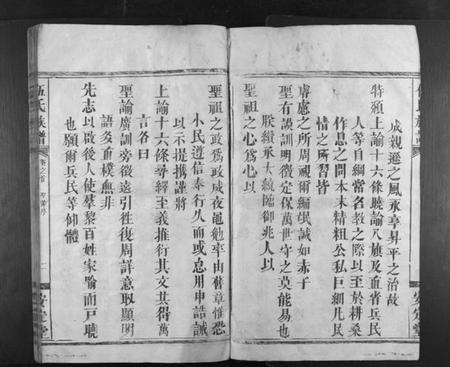 成親遜之風永享昇平之治故
特頒上諭十六條曉諭八旗及直省兵民
人等自綱常名教之際以至於耕桑
作息之間本末精粗公私巨細凡民
情之所習皆
睿慮之所周視爾編氓誠如赤子
聖有謨訓明徵定保萬世守之莫能易也
朕纘承大統臨御兆人以
聖祖之心為心以
聖祖之政為政夙夜黽勉率由舊章惟恐
小民遵信奉行久而或怠用申誥誡
以示提撕謹將
上諭十六條尋繹其義推衍其文共得萬
言名曰
聖諭廣訓旁徵遠引往復周詳意取顯明
語多直樸無非
先志以啟後人使羣黎百姓家喻而戶曉
也願爾兵民等仰體
伍氏族譜
卷之首
安定堂